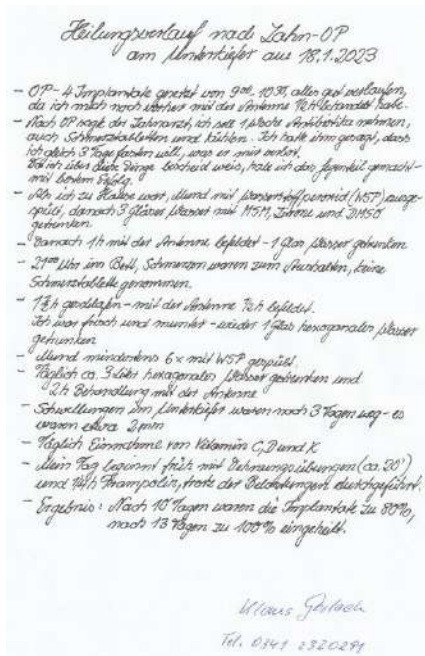 Heilungsverlauf nach Zahn-OP
am Unterkiefer am 18.1.2023
- OP - 4 Implantate gesetzt von 9⁰⁰-10³⁰, alles gut verlaufen,
da ich mich noch vorher mit der Antenne ½h behandelt habe.
- Nach OP sagte der Zahnarzt, ich soll 1 Woche Antibiotika nehmen,
auch Schmerztabletten und kühlen. Ich hatte ihm gesagt, dass
ich gleich 3 Tage fasten will, was er mir verbot.
Da ich über diese Dinge bescheid weis, habe ich das Gegenteil gemacht -
mit bestem Erfolg.
- Als ich zu Hause war, Mund mit Wasserstoffperoxid (WSP) ausge-
spült, danach 3 Gläser Wasser mit MSM, Zitrone und DMSO
getrunken
- Danach 1h mit der Antenne befeldet - 1 Glas Wasser getrunken
- 21⁰⁰ Uhr ins Bett, Schmerzen waren zum Aushalten, keine
Schmerztablette genommen.
- geschlafen - mit der Antenne ½h befeldet.
Ich war frisch und munter - wieder 1 Glas hexagonales Wasser
getrunken
- Mund mindestens 6x mit WSP gespült.
- Täglich ca. 3 Liter hexagonales Wasser getrunken und
2h Behandlung mit der Antenne
- Schwellungen im Unterkiefer waren nach 3 Tagen weg - es
waren etwa 2mm
- Täglich Einnahme von Vitamin C, D und K
- Mein Tag beginnt früh mit Dehnungsübungen (ca. 20')
und Trampolin, trotz der Belastungen durchgeführt.
- Ergebnis: Nach 10 Tagen waren die Implantate zu 80%,
nach 13 Tagen zu 100% eingeheilt.
Klaus Gerlach
Tel. 0341 2320291